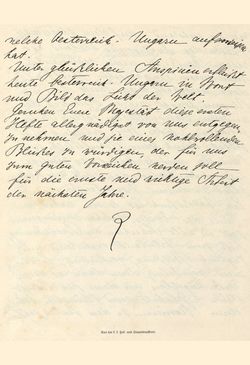 welche Oesterreich-Ungarn aufzuweisen
hat.
Unter glücklichen Auspicien erblickt
heute Oesterreich-Ungarn in Wort
und Bild das Licht der Welt.
Geruhen Eure Majestät diese ersten
Hefte allergnädigst von uns entgegen
zu nehmen und sie eines wohlwollenden
Blickes zu würdigen, der für uns
zum guten Vorzeichen werden soll
für die ernste und wichtige Arbeit
der nächsten Jahre.
R
Aus der k. k. Hof- und Staatsdruckerei.